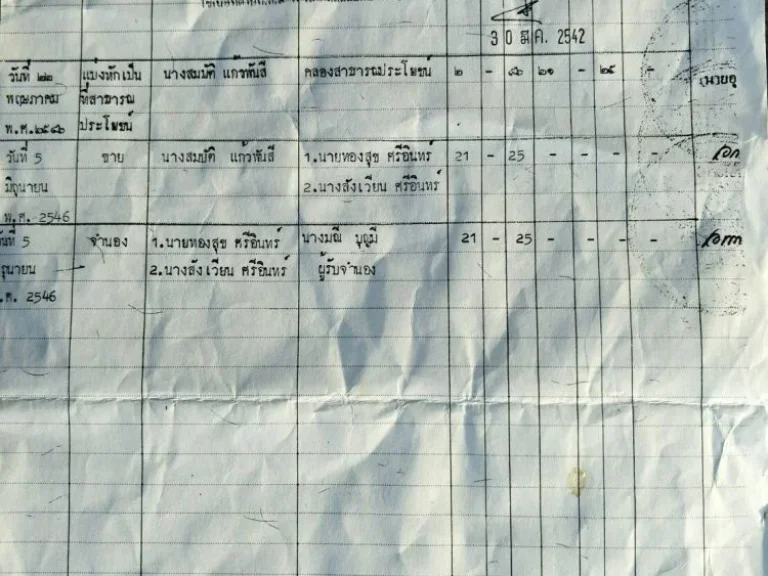 30 มี.ค. 2542
วันที่ ๒๒ แบ่งหักเป็น นางสมบัติ แก้วพันสี คลองสาธารณประโยชน์ ๒ - ๘๖ ๒๑ - ๒๕ -
พฤษภาคม ที่สาธารณ
พ.ศ.๒๕๔๖ ประโยชน์
วันที่ 5 ขาย นางสมบัติ แก้วพันสี 1.นายทองสุข ศรีอินทร์ 21 - 25 - - - -
มิถุนายน 2.นางสังเวียน ศรีอินทร์
พ.ศ. 2546
นที่ 5 จำนอง 1.นายทองสุข ศรีอินทร์ นางมณี บุญมี 21 - 25 - - - -
ถุนายน 2.นางสังเวียน ศรีอินทร์ ผู้รับจำนอง
.ศ. 2546